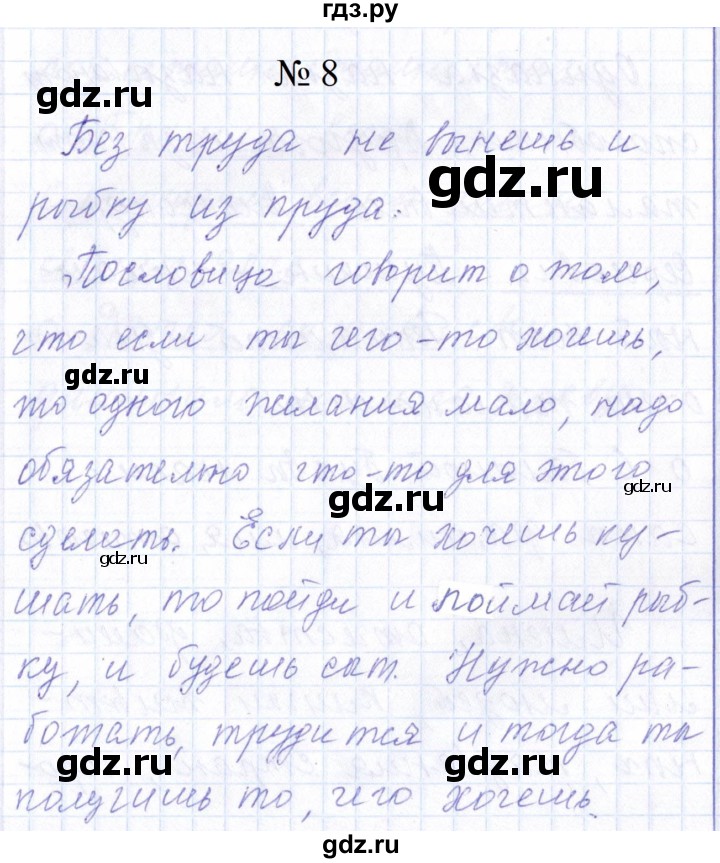 гдз.ру
№ 8
gdz.ru
Без труда не вынешь и
gdz.ru
рыбку из пруда.
Пословица говорит о том,
что если ты чего-то хочешь,
gdz.ru
то одного желания мало, надо
обязательно что-то для этого
gdz.ru
gdz.ru
сделать. Если ты хочешь ку-
gdz.ru
шать, то пойди и поймай рыб-
ку, и будешь сыт. Нужно ра-
ботать, трудится и тогда ты
gdz.ru
gdz.ru
получишь то, чего хочешь.
gdz.ru